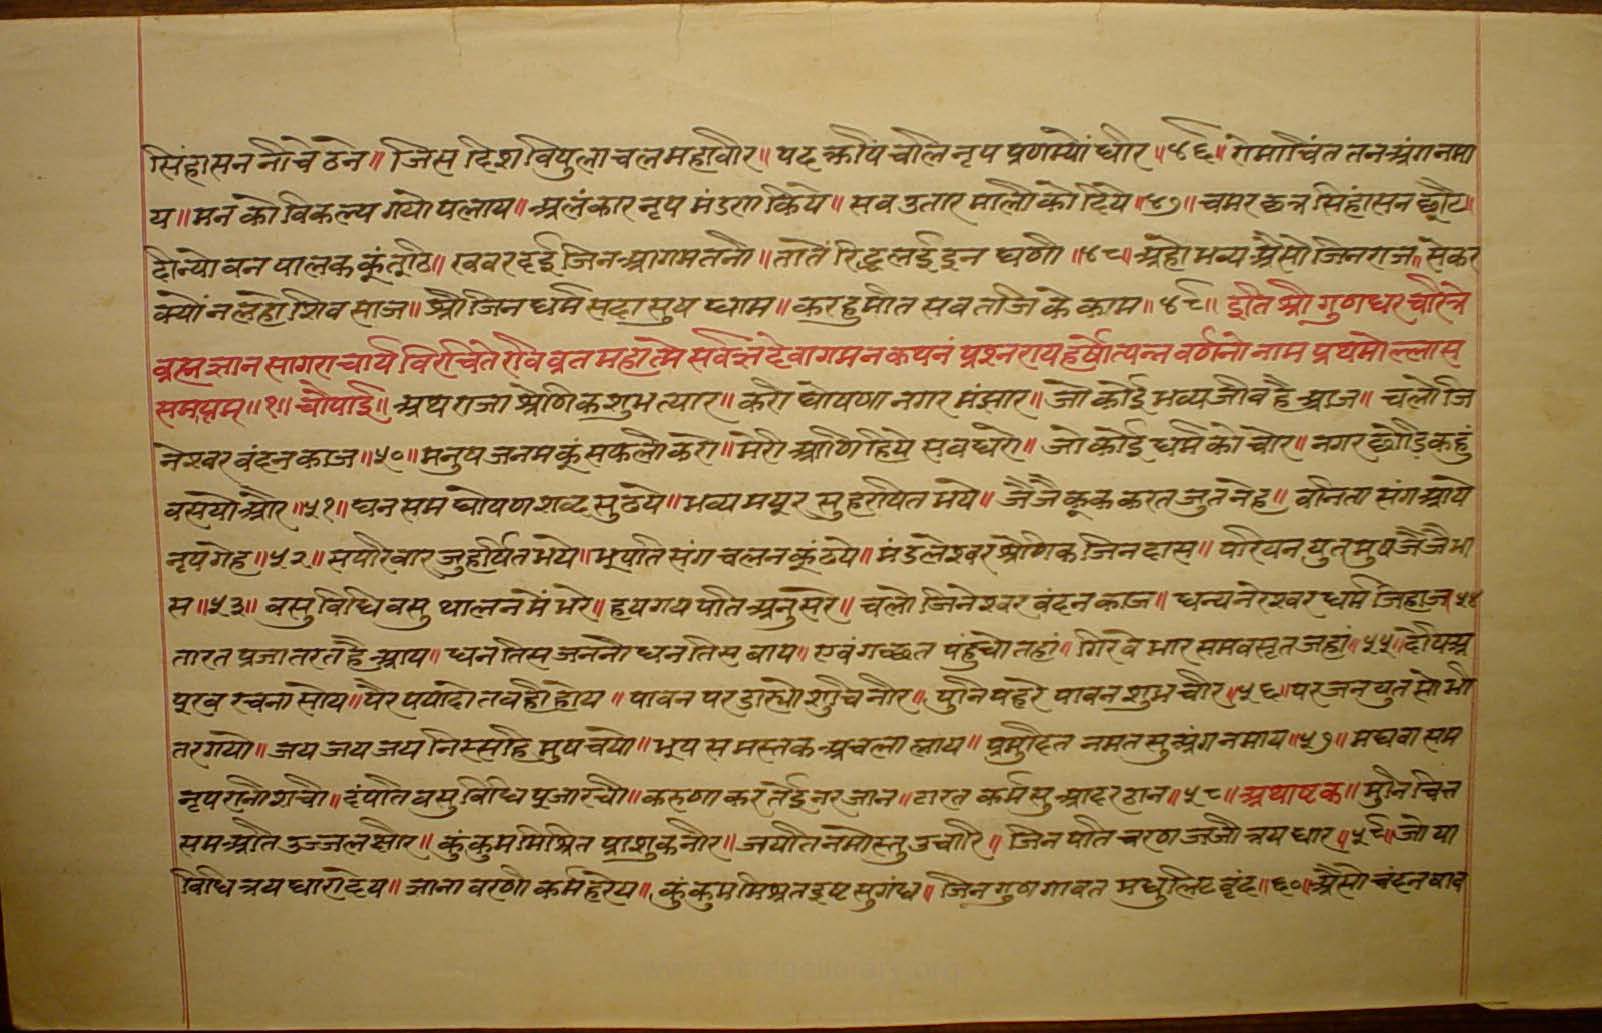 सिंहासन नीचे ठने॥ जिस दिश विपुलाचल महावीर॥ पद सोंपचौल नृप प्रणम्यों धीर॥४६॥ रोमांचित तन अंग नमा
य॥ मन को विकल्प गयो पलाय॥ अलंकार नृप मंडरा किये॥ सब उतार माली को दिये॥४७॥ चमर छत्र सिंहासन छौट॥
दीन्यो वन पालक कूं तूठि॥ खबर दई जिन आगम तनी॥ तातें रिद्ध लई इन घणी॥४८॥ अहो भव्य औसो जिनराज॥ सेकर
क्यों न लहो शिव साज॥ श्री जिन धर्म सदा सुष धाम॥ करहु मीत सब तजि के काम॥४९॥ इति श्री गुणधर चरित्रे
ब्रह्म ज्ञान सागराचार्य विरचिते रवि व्रत महात्मे सर्वज्ञ देवागमन कथनं प्रश्न राय हर्षोत्पन्न वर्णनो नाम प्रथमोल्लास
समाप्तम्॥१॥ चौपाई॥ अथ राजा श्रेणिक शुभ त्यार॥ करी घोषणा नगर मंझार॥ जो कोई भव्य जीव है आज॥ चलो जि
नेश्वर वंदन काज॥५०॥ मनुष जनम कूं सफलो करो॥ मेरी आणि हिये सब धरो॥ जो कोई धर्म को चोर॥ नगर छोडि कहुं
वसियो और॥५१॥ घन सम घोषण शब्द सु ठये॥ भव्य मयूर सु हरषित भये॥ जै जै कूक करत जुत नेह॥ वनिता संग आये
नृप गेह॥५२॥ सपरिवार जु हर्षित भये॥ भूपति संग चलन कूं ठये॥ मंडलेश्वर श्रेणिक जिनदास॥ परियन युत मुष जै जै भा
स॥५३॥ वसु विधि वसु थालन में भरे॥ हय गय पति अनुसरे॥ चलो जिनेश्वर वंदन काज॥ धन्य नरेश्वर धर्म जिहाज॥५४
तारत प्रजा तरत है आय॥ धन तिस जननी धन तिस बाय॥ एवं गच्छत पंहुंचो तहां॥ गिर वैभार समवसृत जहां॥५५॥ देषि अ
पूरव रचना सोय॥ पैर पयादो तबही होय॥ पावन पर डार्यो शुचि नीर॥ पुनि पहरे पावन शुभ चीर॥५६॥ परजन युत सो भी
तर गयो॥ जय जय जय निस्सहि मुष चयो॥ भूप स मस्तक अचला लाय॥ प्रमुदित नमत सु अंग नमाय॥५७॥ मघवा सम
नृप रानी शची॥ दंपति वसु विधि पूजा रची॥ करुणा कर तेई नर जान॥ टारत कर्म सु आदर ठान॥५८॥ अथाष्टक॥ मुनि चित्त
सम अति उज्जल क्षीर॥ कुंकुम मिश्रित प्राशुक नीर॥ जयति नमोस्तु उचारि॥ जिन पति चरण जजौ त्रय धार॥५९॥ जो या
विधि त्रय धारा देय॥ ज्ञाना वरणी कर्म हरेय॥ कुंकुम मिश्रत इष्ट सुगंध॥ जिन गुण गावत मधुलिट वृंद॥६०॥ औसो चंदन बाव